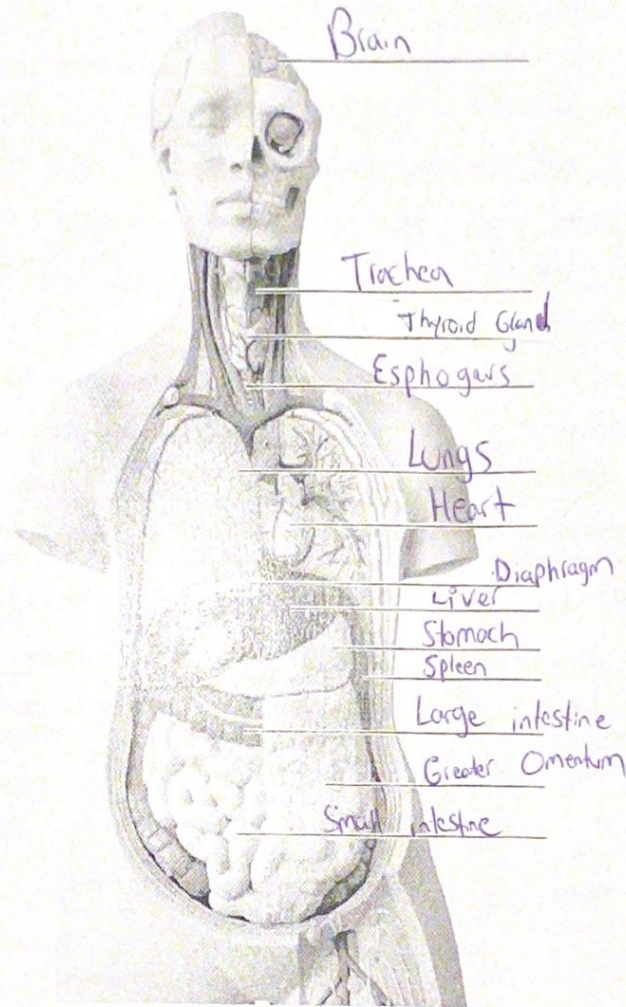 Brain
Trachea
Thyroid Gland
Esphogars
Lungs
Heart
Diaphragm
Liver
Stomach
Spleen
Large intestine
Greater Omentum
Small intestine